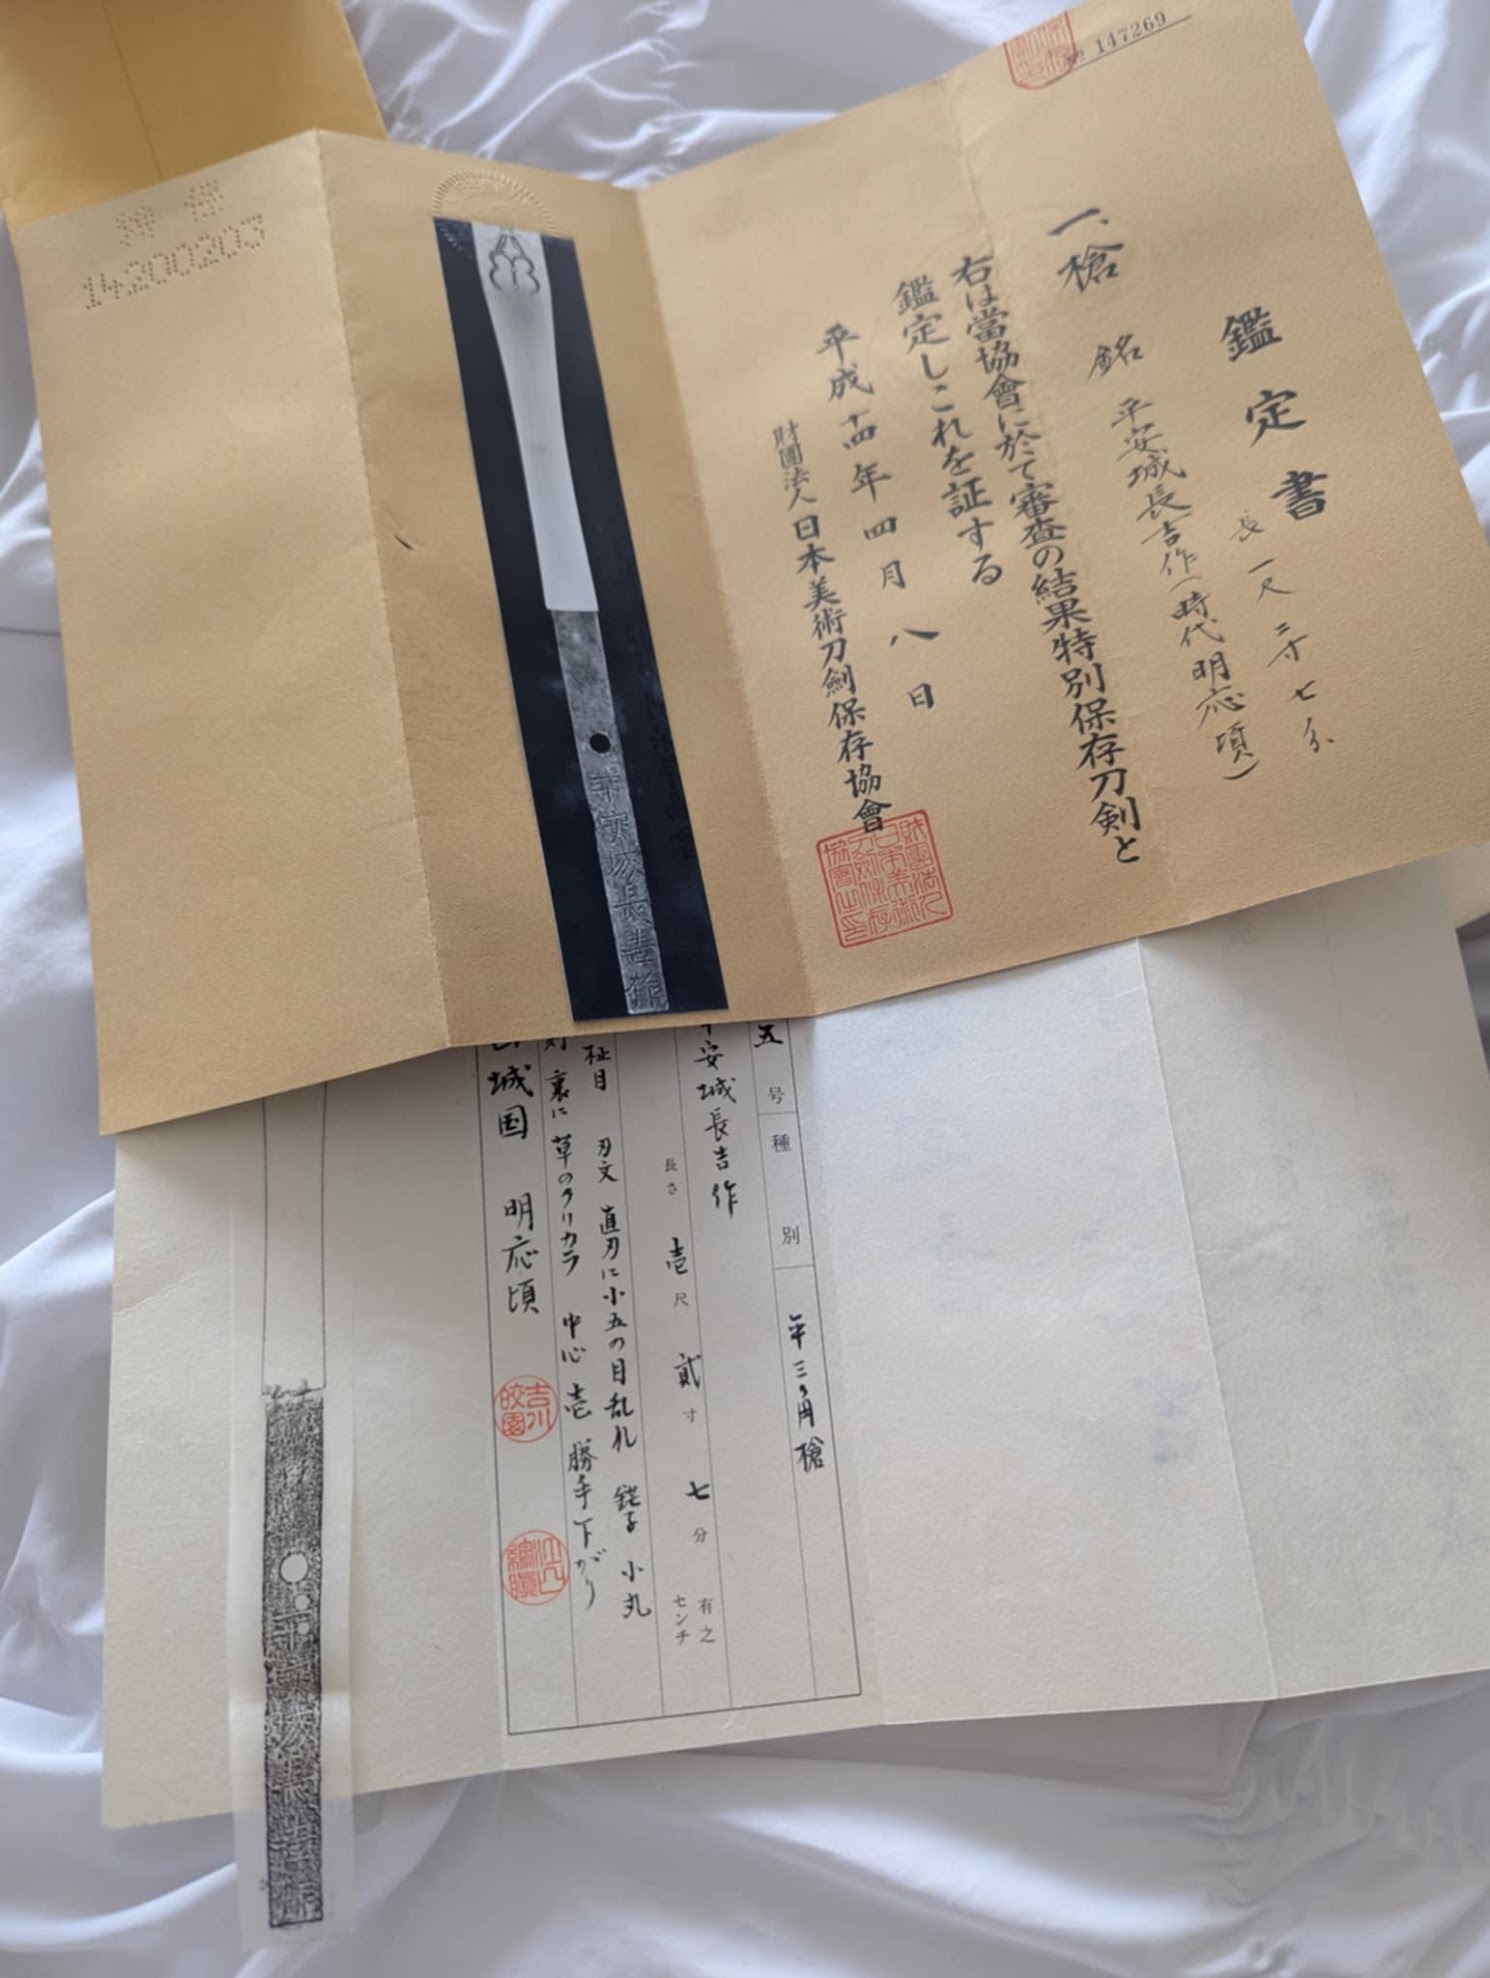 147269
鑑定書
一、槍 銘 平安城長吉作(時代明応頃)
長一尺二寸七分
右は當協會に於て審査の結果特別保存刀剣と
鑑定しこれを証する
平成十四年四月八日
財團法人日本美術刀劍保存協會
財團法人日本美術刀劍保存協會之印
特保
14200203
平安城長吉作
五号
種別 平三ヶ角槍
平安城長吉作
長さ 壱尺貳寸七分 有之
センチ
柾目 刃文 直刃に小五の目乱れ 鋩子 小丸
裏に草のクリカラ 中心 壱 勝手下がり
城国 明応頃
平安城長吉作